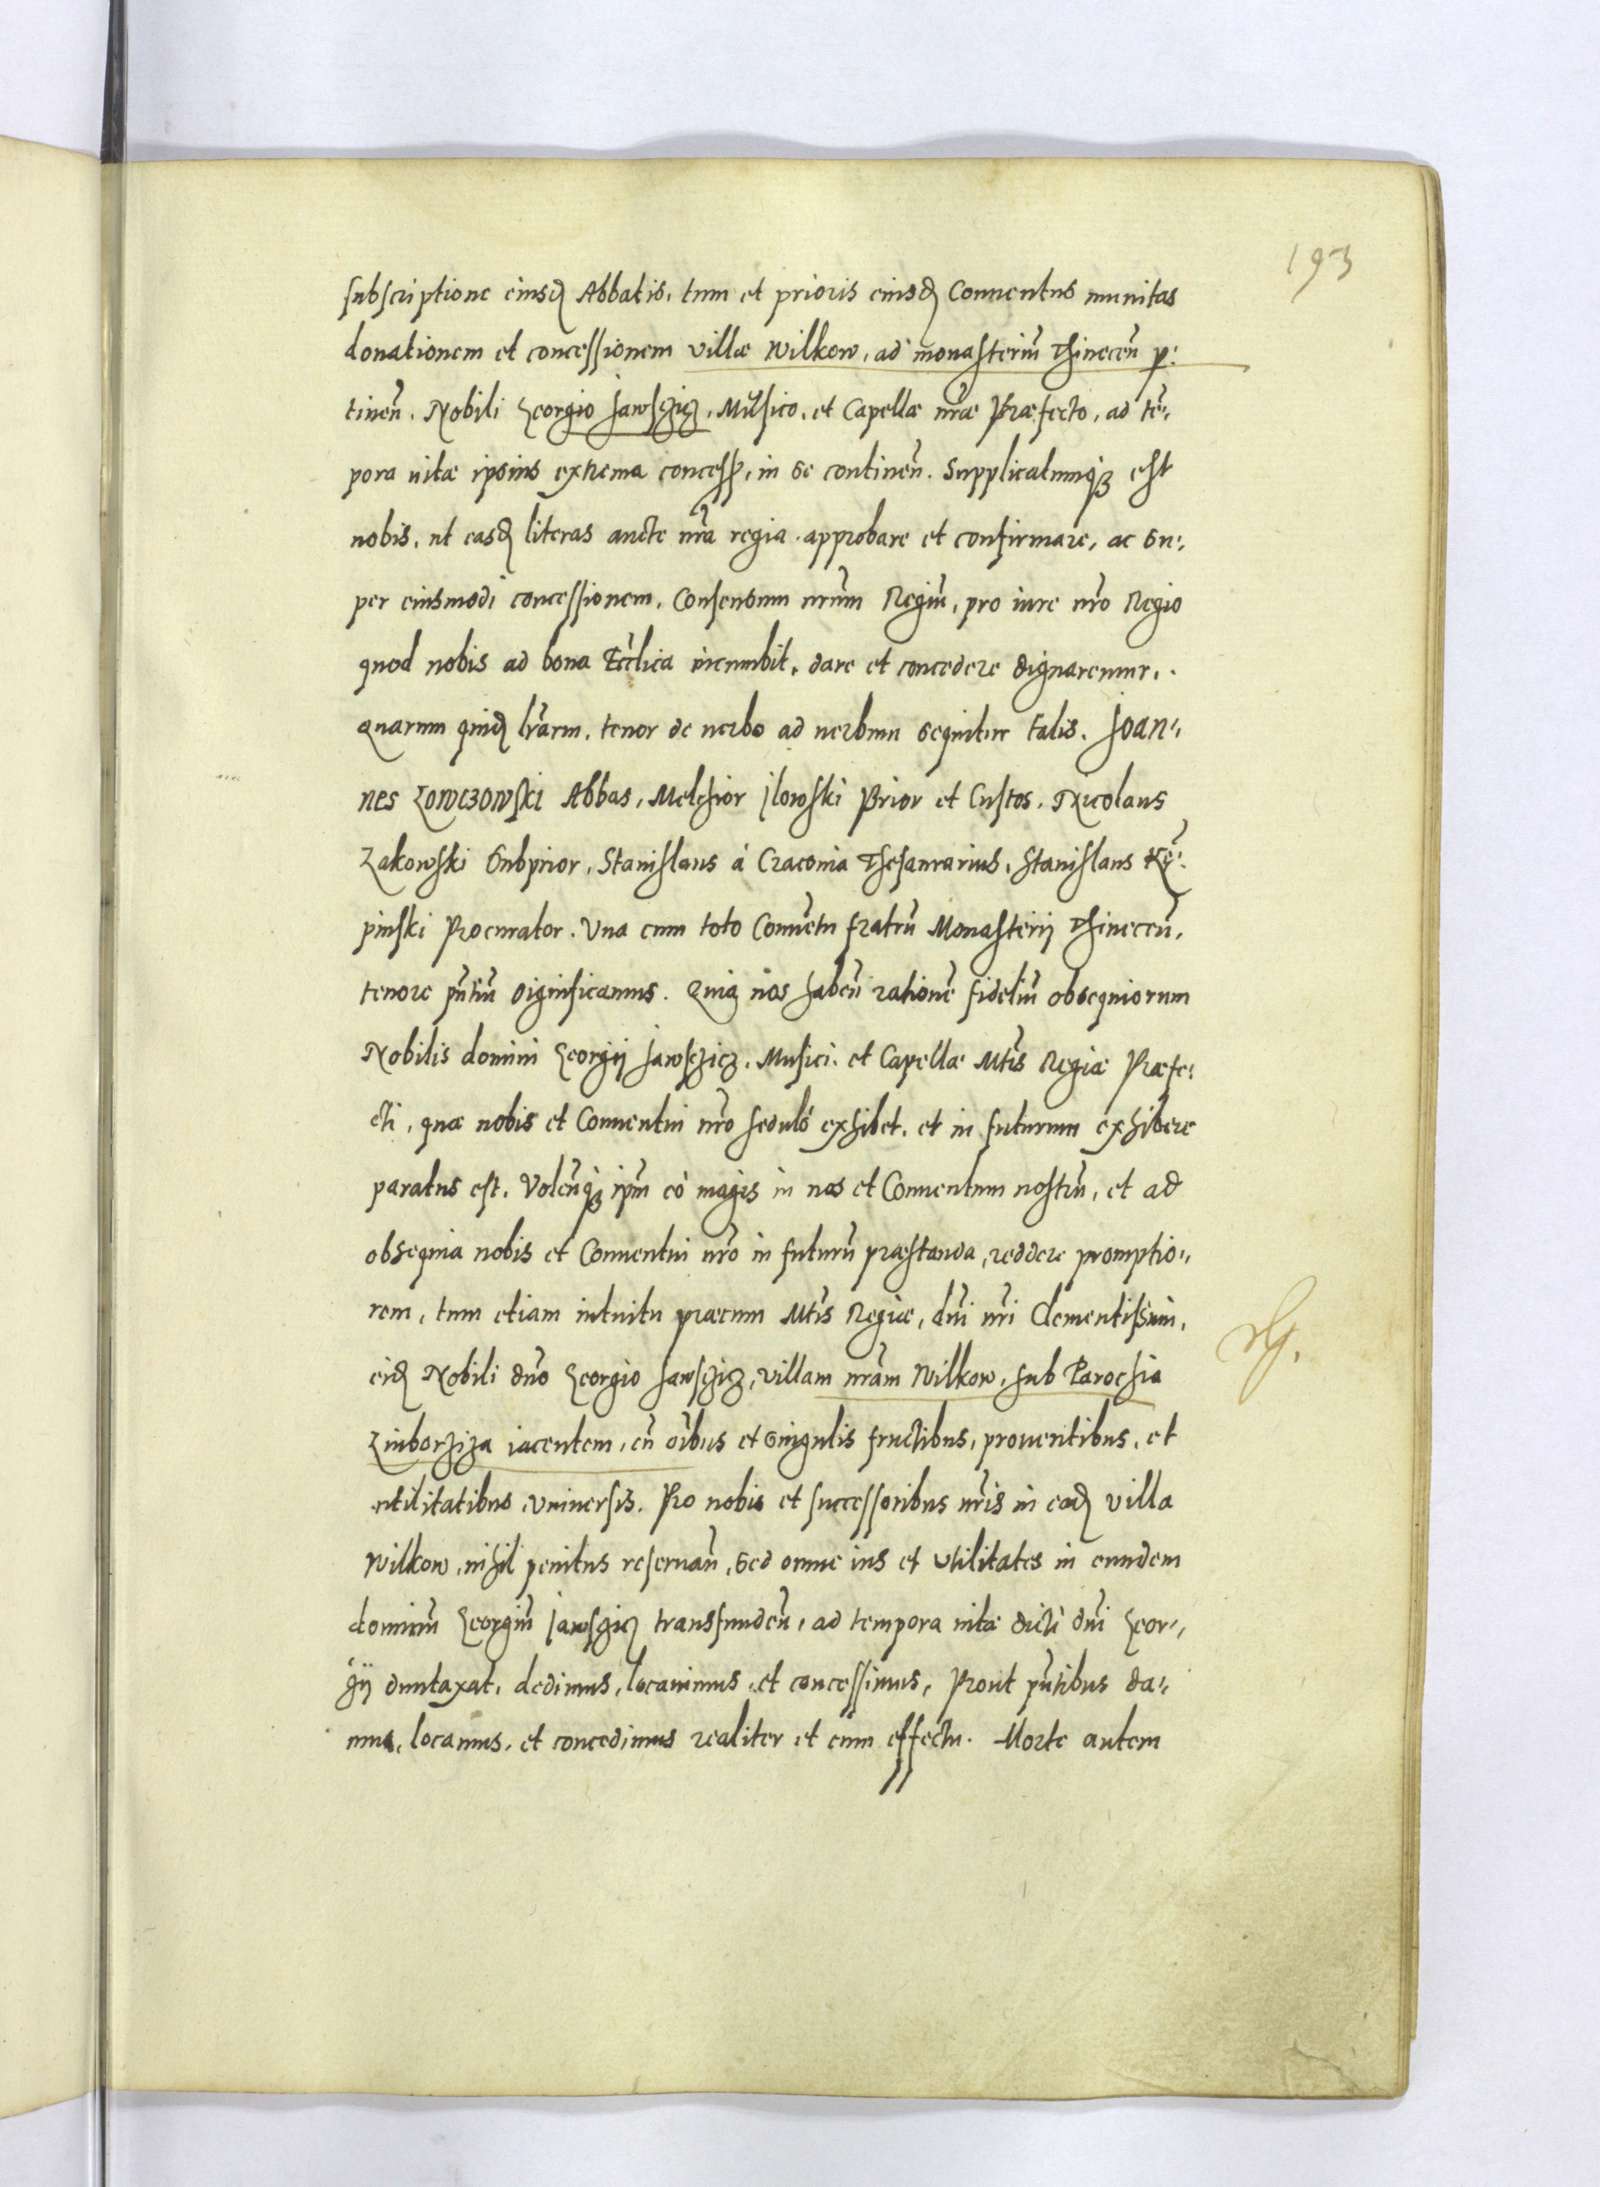 193
subscriptione eiusd Abbatis, tum et prioris eiusd Conuentus munitas
donationem et concessionem villæ Wilkow, ad monasteriū Thinecen̄ p:
tinen̄. Nobili Georgio Jawschicz, Musico, et Capellæ nr̄æ Præfecto, ad tē:,
pora uitæ ipsius extrema concess, in se continen̄. Supplicatumq3 est
nobis, ut easd literas aucte nr̄a regia approbare et confirmare, ac su:,
per eiusmodi concessionem, Consensum nrūm Regiū, pro iure nr̄o Regio
quod nobis ad bona Eccl̄ica incumbit, dare et concedere dignaremur.
Quarum quid lr̄arm, tenor de uerbo ad uerbum sequitur talis. Joan:,
nes Lowczowski Abbas, Melchior Jlowski Prior et Custos, Nicolaus
Zakowski Subprior, Stanislaus á Craconia Thesaurarius, Stanislaus Kē:
pinski Procurator. Vna cum toto Conuētu fratrū Monasterij Thinecen̄,
tenore pn̄tiū significamus. Quia nos haben̄ rationē fideliū obsequiorum
Nobilis domini Georgij Jawschicz. Musici. et Capellæ Mt̄is Regiæ Præfe:
cti, quæ nobis et Conuentui nr̄o seduló exhibet, et in futurum exhibere
paratus est. Volen̄q3 ipm̄ eó magis in nos et Conuentum nostrū, et ad
obsequia nobis et Conuentui nr̄o in futurū præstanda, reddere promptio:,
rem, tum etiam intuitu præcum Mt̄is Regiæ, dn̄i nr̄i Clementissimi,
eid Nobili dn̄o Georgio Jawschicz, villam nr̄am Wilkow, sub Parochia
Zimborzicza iacentem, cū oībus et singulis fructibus, prouentibus, et
utilitatibus vniuersis. Pro nobis et successoribus nr̄is in ead villa
Wilkow, nihil penitus reseruan̄, sed omne ius et vtilitates in eundem
dominū Georgiū Jawschicz transfunden̄, ad tempora uitæ dicti dn̄i Geor:,
gij duntaxat, dedimus, locauimus, et concessimus, Prout pn̄tibus da:,
mus, locamus, et concedimus realiter et cum effectu. Morte autem